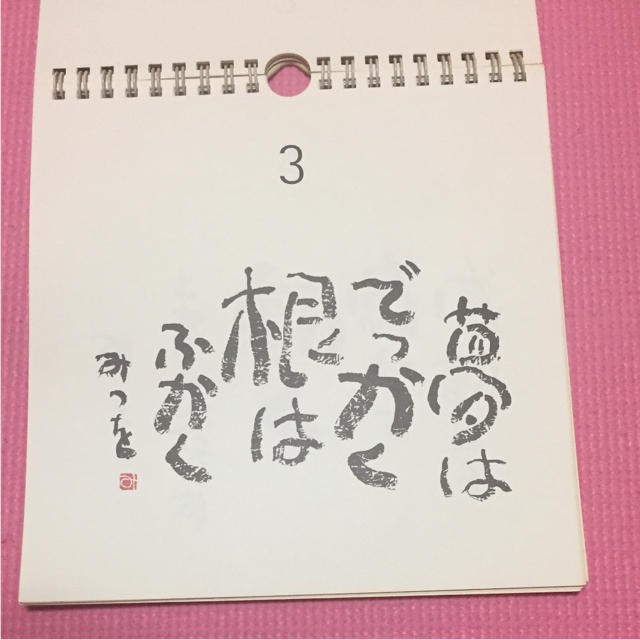 3
夢は
でっかく
根は
ふかく
みつを